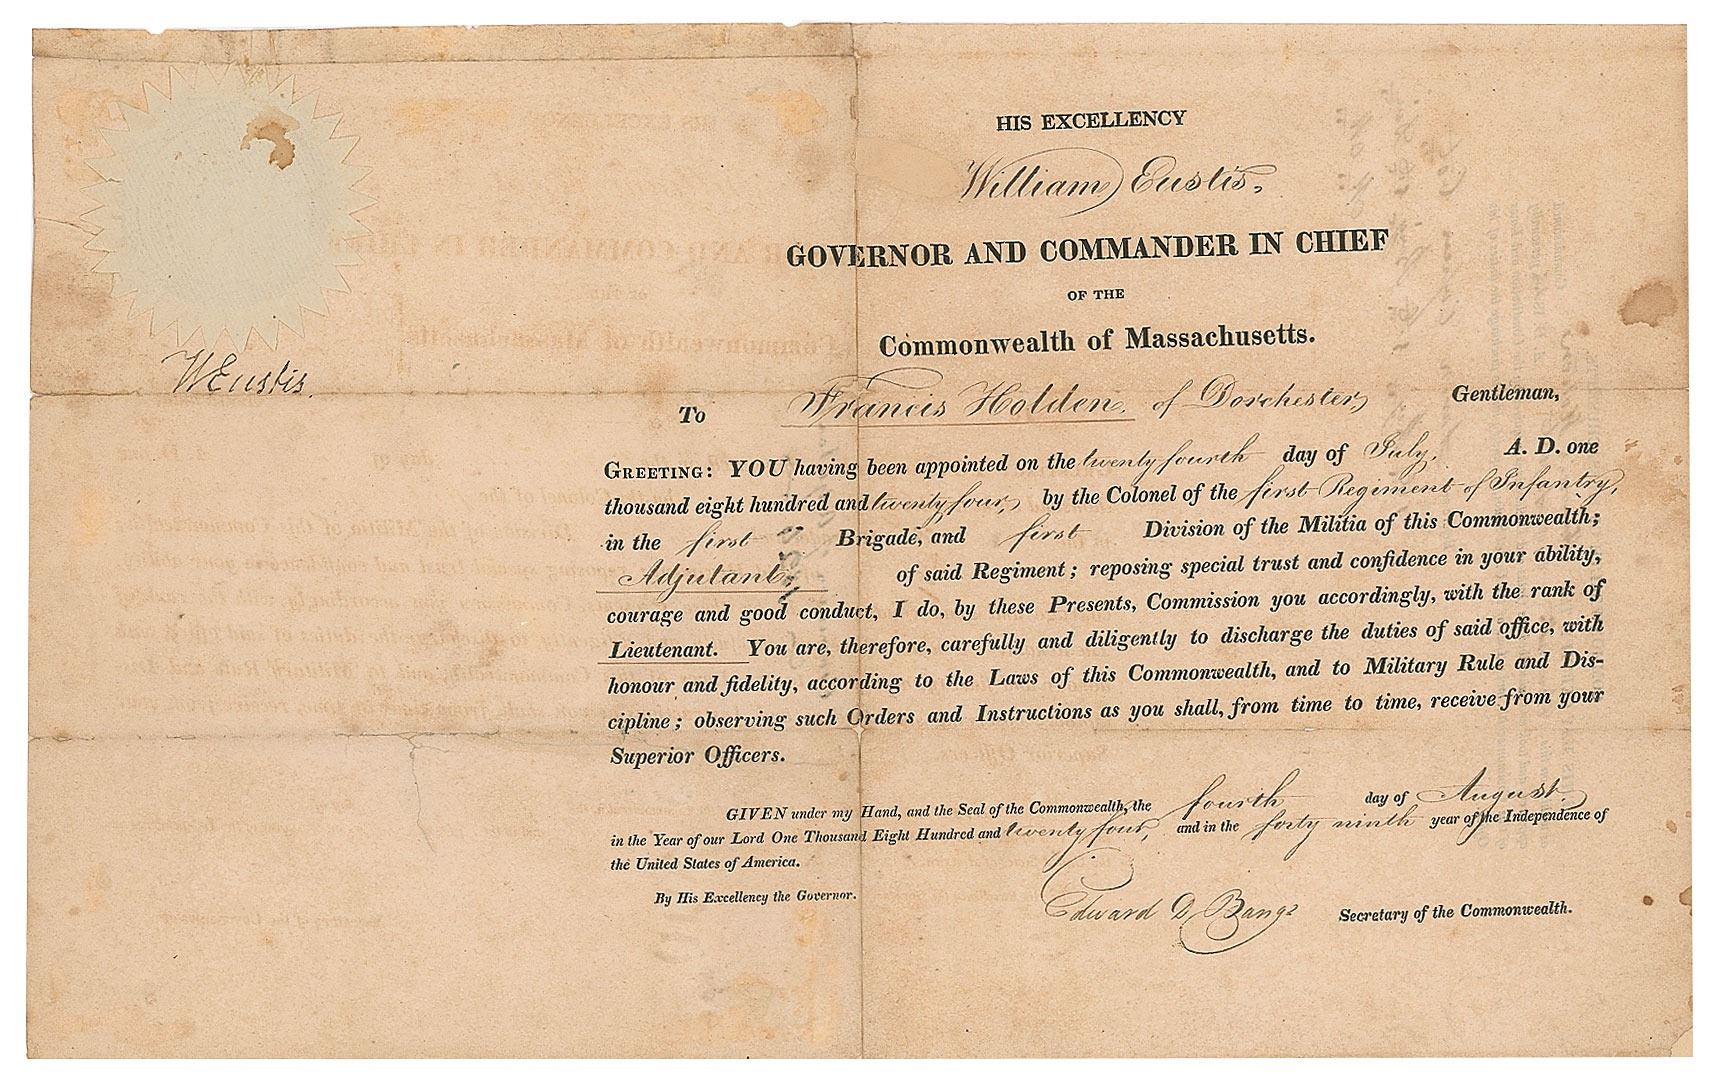 HIS EXCELLENCY
William Eustis,
GOVERNOR AND COMMANDER IN CHIEF
OF THE
Commonwealth of Massachusetts.
WEustis.
To Francis Holden. of Dorchester, Gentleman,
GREETING: YOU having been appointed on the twenty fourth day of July. A. D. one
thousand eight hundred and twenty four, by the Colonel of the first Regiment of Infantry,
in the first Brigade, and first Division of the Militia of this Commonwealth;
Adjutant, of said Regiment; reposing special trust and confidence in your ability,
courage and good conduct, I do, by these Presents, Commission you accordingly, with the rank of
Lieutenant. You are, therefore, carefully and diligently to discharge the duties of said office, with
honour and fidelity, according to the Laws of this Commonwealth, and to Military Rule and Dis-
cipline; observing such Orders and Instructions as you shall, from time to time, receive from your
Superior Officers.
GIVEN under my Hand, and the Seal of the Commonwealth, the fourth day of August.
in the Year of our Lord One Thousand Eight Hundred and twenty four, and in the forty ninth year of the Independence of
the United States of America.
By His Excellency the Governor.
Edward D. Bangs Secretary of the Commonwealth.